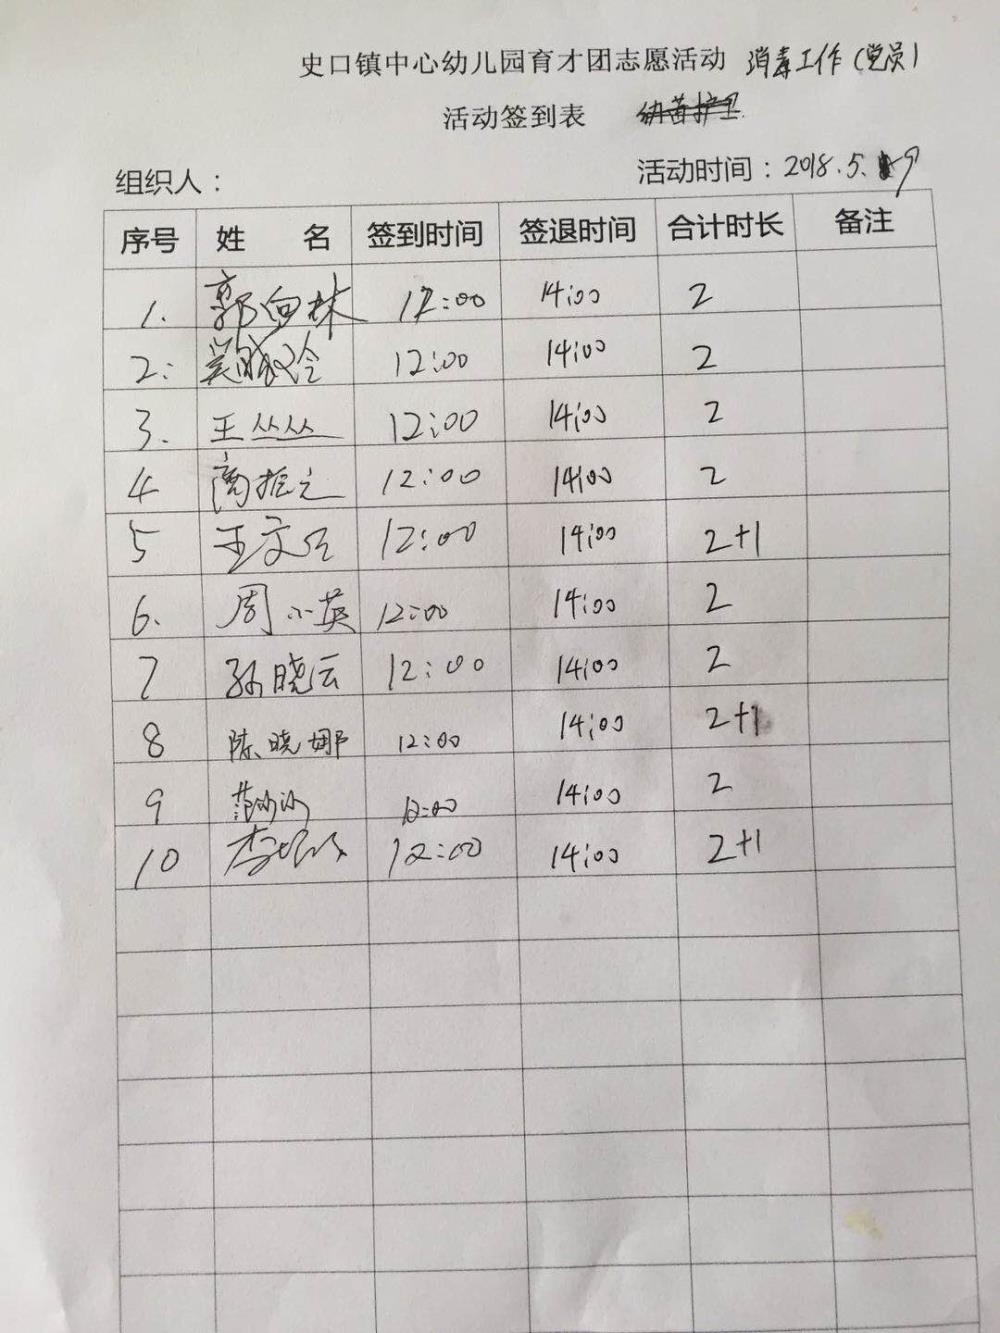 史口镇中心幼儿园育才团志愿活动 消毒工作(党员)
活动签到表 幼苗护卫
组织人： 活动时间：2018.5.9
序号 姓 名 签到时间 签退时间 合计时长 备注
1. 郭向林 12:00 14:00 2
2. 12:00 14:00 2
3. 王丛丛 12:00 14:00 2
4 12:00 14:00 2
5 王文 12:00 14:00 2+1
6. 周小英 12:00 14:00 2
7 孙晓云 12:00 14:00 2
8 陈晓娜 12:00 14:00 2+1
9 范沙沙 12:00 14:00 2
10 李 12:00 14:00 2+1